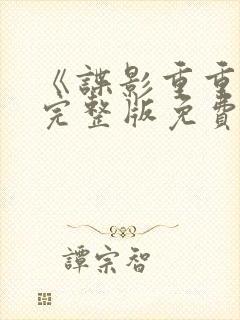 《諜影重重
完整版免費
譚宗智